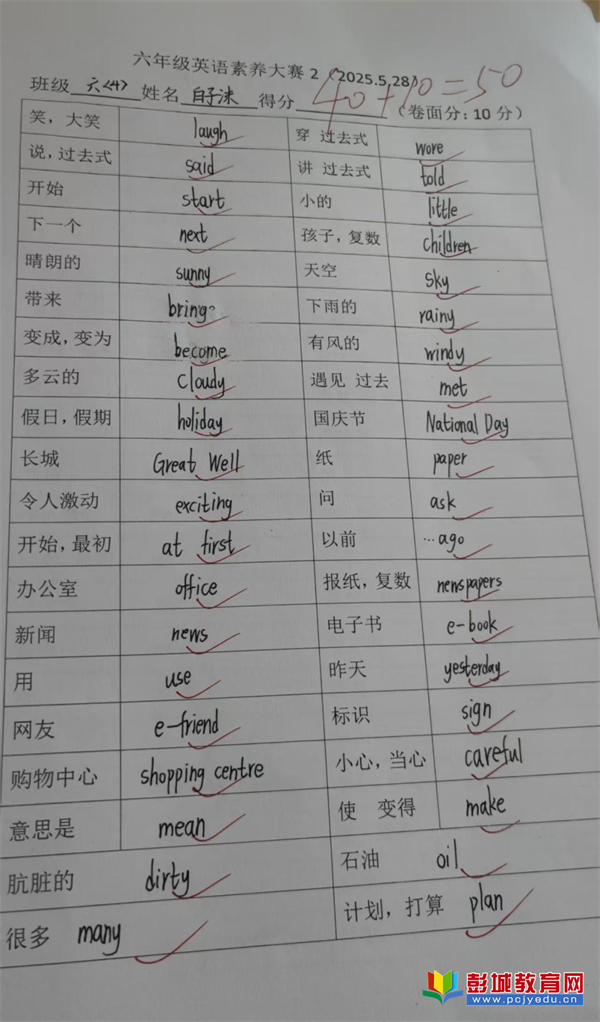 六年级英语素养大赛 2（2025.5.28）
班级 六<4> 姓名 得分 40+10=50 （卷面分：10 分）
笑，大笑 laugh 穿 过去式 wore
说，过去式 said 讲 过去式 told
开始 start 小的 little
下一个 next 孩子，复数 children
晴朗的 sunny 天空 sky
带来 bring 下雨的 rainy
变成，变为 become 有风的 windy
多云的 cloudy 遇见 过去 met
假日，假期 holiday 国庆节 National Day
长城 Great Well 纸 paper
令人激动 exciting 问 ask
开始，最初 at first 以前 …ago
办公室 office 报纸，复数 newspapers
新闻 news 电子书 e-book
用 use 昨天 yesterday
网友 e-friend 标识 sign
购物中心 shopping centre 小心，当心 careful
意思是 mean 使 变得 make
肮脏的 dirty 石油 oil
很多 many 计划，打算 plan
彭城教育网
www.pcjyedu.cn